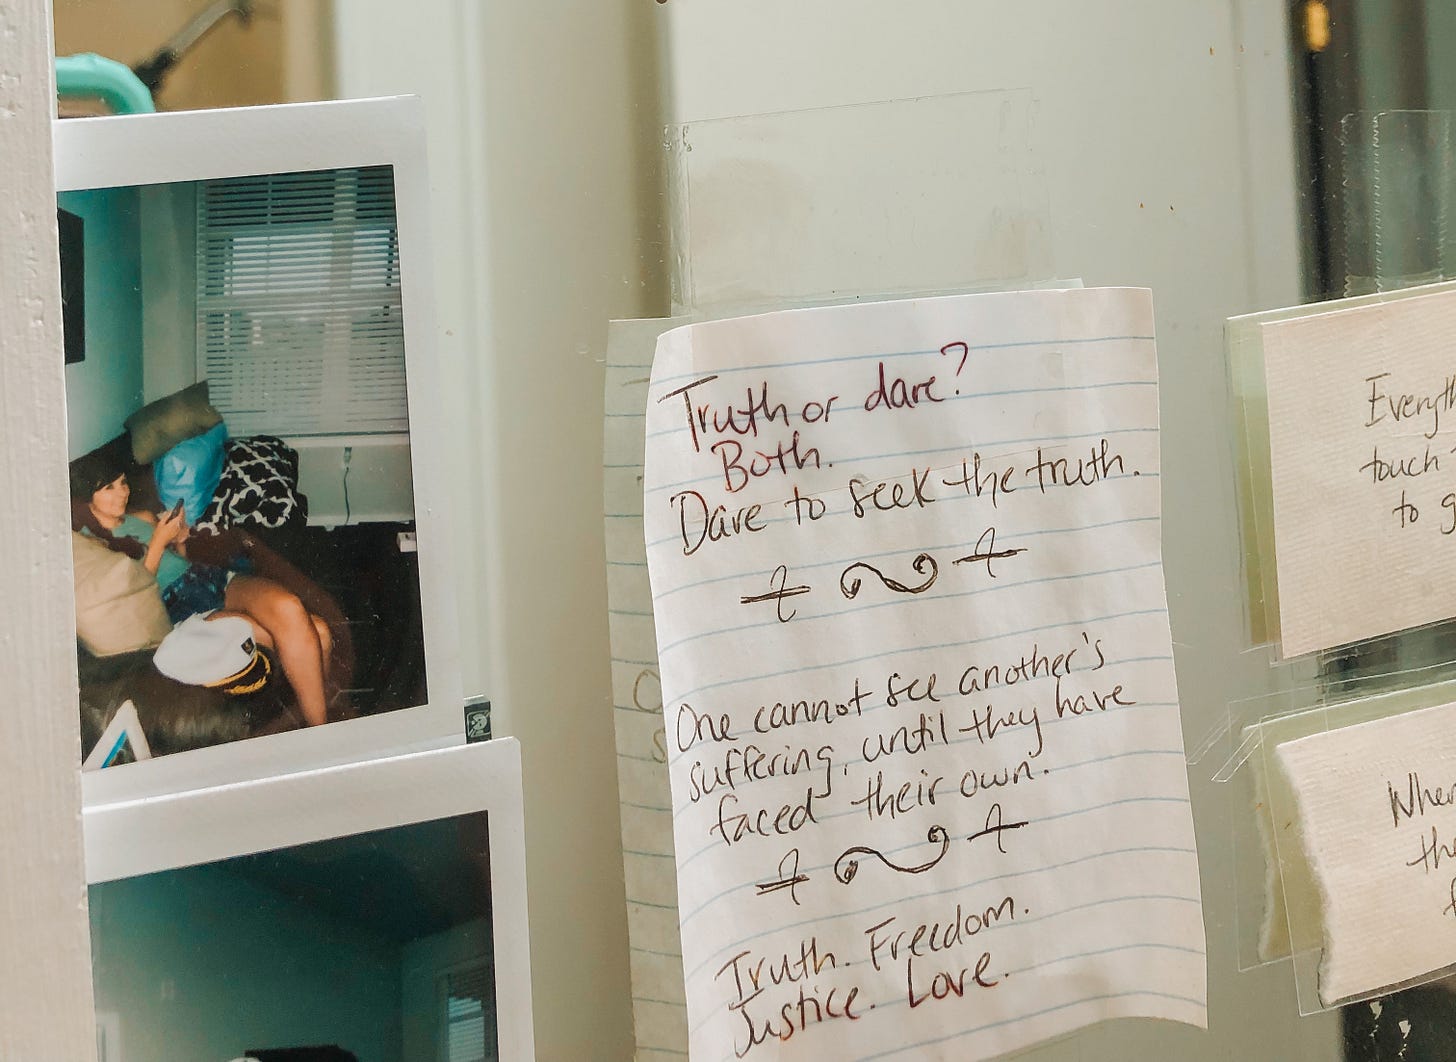 Truth or dare?
Both.
Dare to seek the truth.
One cannot see another's
suffering, until they have
faced their own.
Truth. Freedom.
Justice. Love.
touch
to